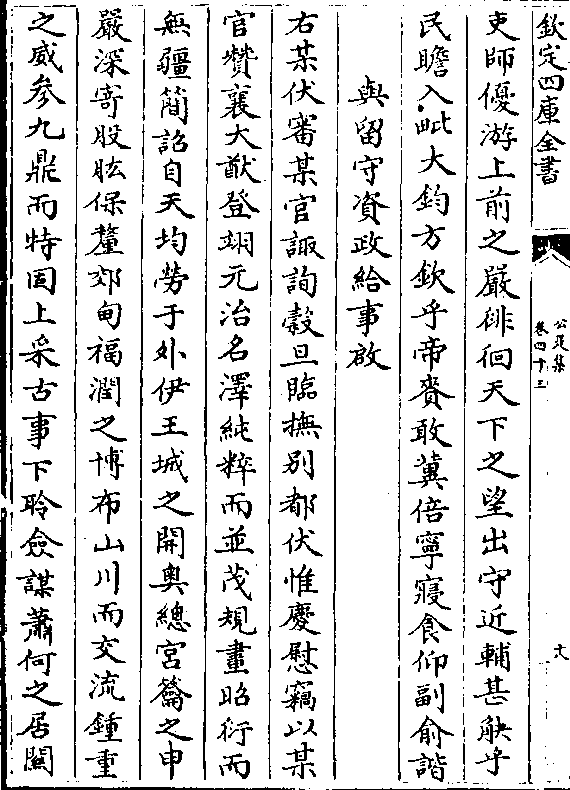 欽定四庫全書
公是集
卷四十三
十八
吏師優游上前之嚴徘徊天下之望出守近輔甚觖乎
民瞻入毗大鈞方欽乎帝賚敢冀倍寧寢食仰副俞諧
與留守資政給事啟
右某伏審某官諏詢穀旦臨撫別都伏惟慶慰竊以某
官贊襄大猷登翊元治名澤純粹而並茂規畫昭衍而
無疆簡詔自天均勞于外伊王城之開奧總宮籥之申
嚴深寄股肱保釐郊甸福潤之博布山川而交流鍾重
之威參九鼎而特固上采古事下聆僉謀蕭何之居關